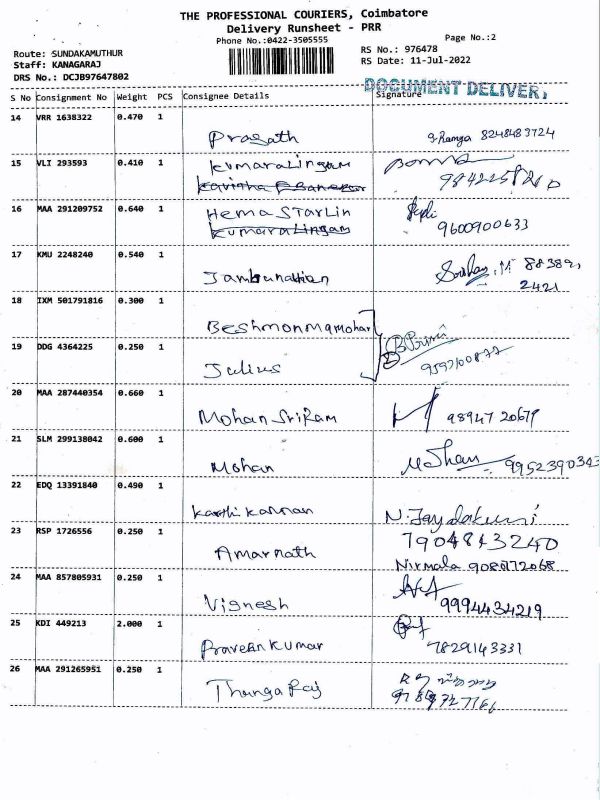 THE PROFESSIONAL COURIERS, Coimbatore
Delivery Runsheet - PRR
Phone No.:0422-3505555
Page No.:2
Route: SUNDAKAMUTHUR
RS No.: 976478
Staff: KANAGARAJ
RS Date: 11-Jul-2022
DRS No.: DCJB97647802
DOCUMENT DELIVER,
S No Consignment No Weight PCS Consignee Details Signature
14 VRR 1638322 0.470 1
Prasath 8248483724
15 VLI 293593 0.410 1 Kumaralingam
16 MAA 291209752 0.640 1 Hema Starlin
Kumaralingam 9600900633
17 KMU 2248240 0.540 1
Jambunathan
2421
18 IXM 501791816 0.300 1
19 DDG 4364225 0.250 1
Julius
20 MAA 287440354 0.660 1
Mohan SriRam
21 SLM 299138042 0.600 1
Mohan Mohan 9952390343
22 EDQ 13391840 0.490 1
Karthi Kannan
23 RSP 1726556 0.250 1 7904843240
Amarnath
Nirmala
24 MAA 857805931 0.250 1
Vignesh 9994434219
25 KDI 449213 2.000 1
Praveen Kumar 7829143331
26 MAA 291265951 0.250 1
Thanga Raj